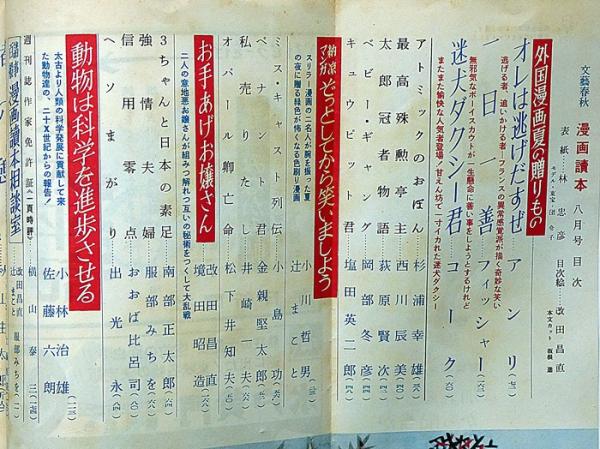 文藝春秋
漫画讀本 八月号目次
表紙・林忠彦 目次絵・改田昌直
外国漫画夏の贈りもの
オレは逃げだすぜ アンリ
逃げる者、追いかける者・フランスの異常感覚派が描く奇妙な笑い
一日一善 フィッシャー
無邪気なボーイスカウトが一生懸命に善い事をしようとするけれど
迷犬タクシー君 コーク
またまた愉快な人気者登場!甘えん坊で一寸イカれた迷犬タクシー
アトミックのおぼん 杉浦幸雄
最高殊勲亭主 西川辰美
太郎冠者物語 荻原賢次
ベビー・ギャング 岡部冬彦
キューピッド君 塩田英二郎
納涼マンガ ぞっとしてから笑いましょう 小川哲男 辻まこと
スリラー漫画の二名人が腕を振った夏の夜に贈る緑色が怖くなる色刷り漫画
ミス・キャスト列伝 小島功
ペナント君 金親堅太郎
私売りたわし 井崎一夫
オパール卿亡命 松下井知夫
お手あげお嬢さん 改田昌直 境田昭造
二人の意地悪お嬢さんが組みつ解れつ互いの秘術をつくして大乱戦
3ちゃんと日本の素足 南部正太郎
強情夫婦 服部みちを
信用零点 おおば比呂司
へソまがり 出光永
動物は科学を進歩させる 小林治雄 佐藤六朗
太古より人類の科学発展に貢献して来た動物達の、二十X世紀からの報告!
週刊誌作家免許証(一頁時評) 横山泰三
漫画讀本相談室 改田昌直 服部みちを